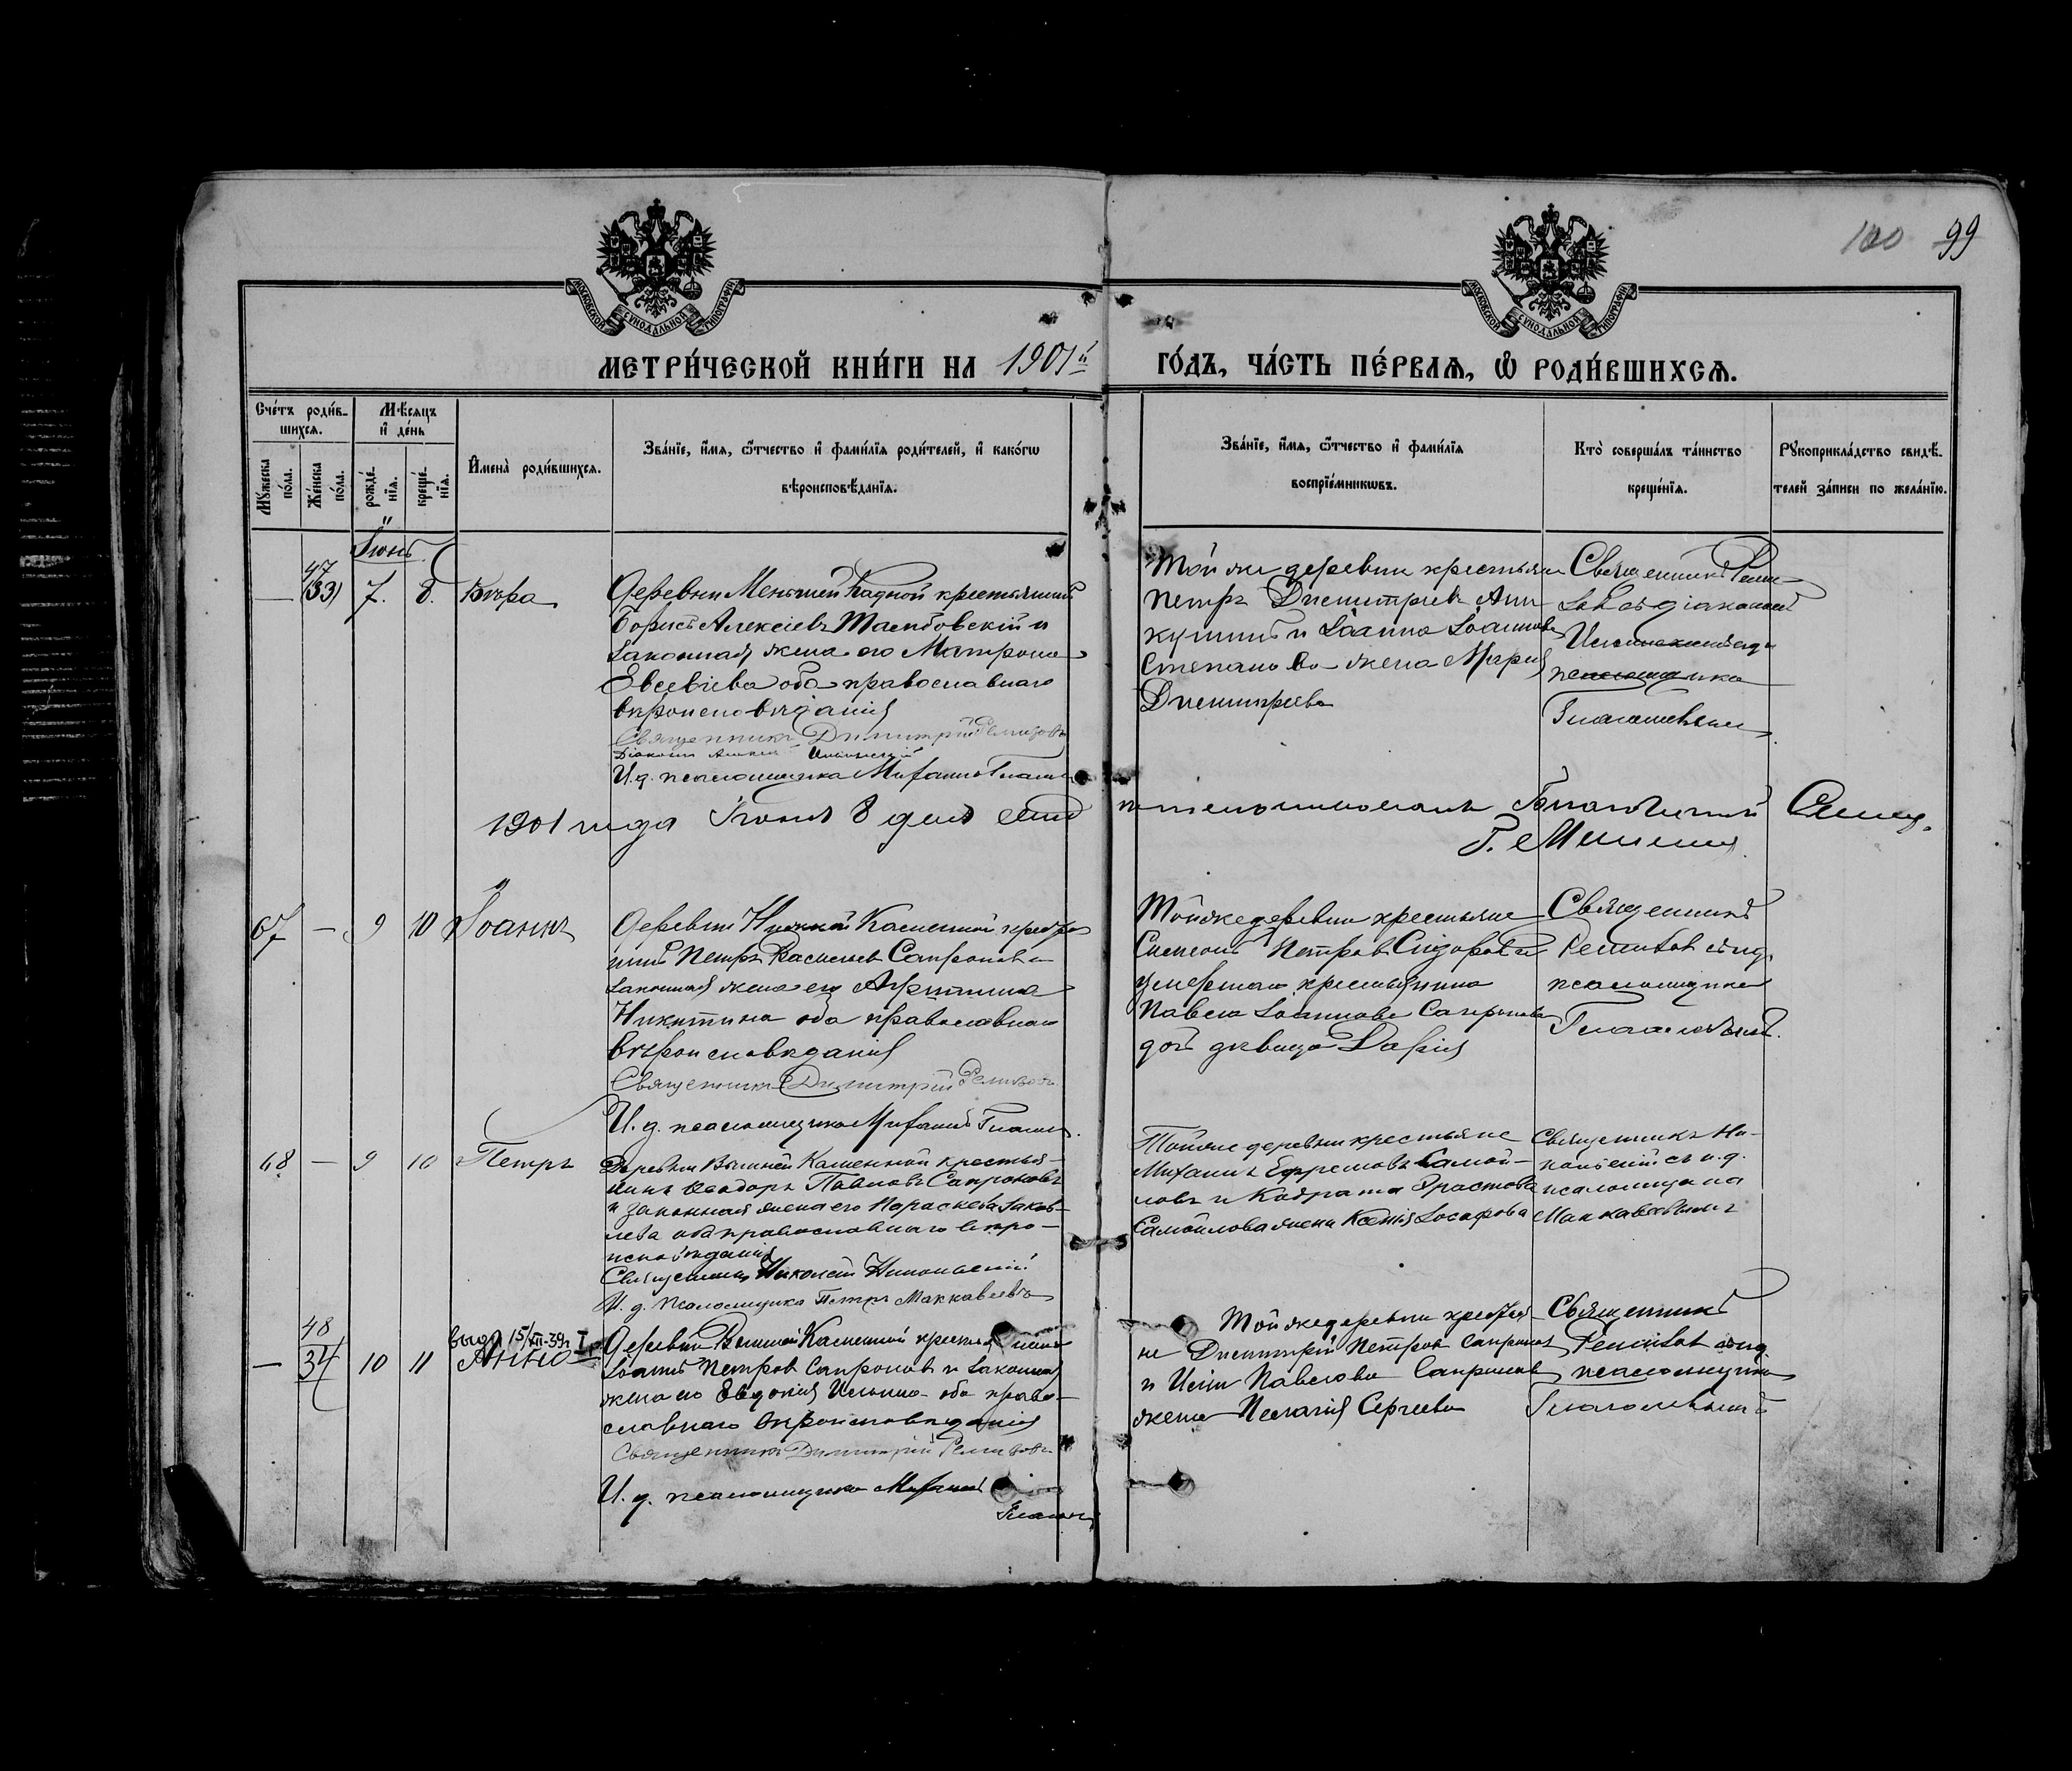 100 99
МОСКОВСКОЙ СѴНОДАЛЬНОЙ ТИПОГРАФІИ
МОСКОВСКОЙ СѴНОДАЛЬНОЙ ТИПОГРАФІИ
МЕТРИ́ЧЕСКОЙ КНИ́ГИ НА 1901й ГО́ДЪ, ЧА́СТЬ ПЕ́РВАѦ, Ѿ РОДИ́ВШИХСѦ.
Сче́тъ роди́в-
шихсѧ.
Мѣ́сѧцъ
и҆ де́нь
Мꙋ́жеска
по́ла.
Же́нска
по́ла.
рожде́-
нїѧ.
креще́-
нїѧ.
И҆мена̀ роди́вшихсѧ.
Зва́нїе, и҆́мѧ, ѻ҆́тчество и҆ фами́лїѧ роди́телей, и҆ како́гѡ
вѣроисповѣ́данїѧ.
Зва́нїе, и҆́мѧ, ѻ҆́тчество и҆ фами́лїѧ
воспрїе́мникѡвъ.
Кто̀ соверша́лъ та́инство
креще́нїѧ.
Рꙋкоприкла́дство свидѣ́-
телей за́писи по жела́нїю.
Іюнь
47
— (33) 7. 8. Вѣра
Деревни Меньшей Кадной крестьянинъ
Борисъ Алексіевъ
законная жена его Матрона
Евсевіева оба православнаго
вѣроисповѣданія
Священникъ Димитрій Ремизовъ
Діаконъ
И. д. псаломщика
Той же деревни крестьяне
Петръ Димитріевъ Ани
кушинъ и Іоанна Іоаннова
Степанова жена Марія
Димитріева
Священникъ Реми-
зовъ съ діакономъ
псаломщика
1901 года Іюня 8 дня
67 — 9 10 Іоаннъ
Деревни Нижней Каменной крестья
нинъ Петръ Васильевъ Сапроновъ и
законная жена его
Никитина оба православнаго
вѣроисповѣданія
Священникъ Димитрій Ремизовъ
И. д. псаломщика
Той же деревни крестьяне
Симеонъ Петровъ Сидоровъ и
умершаго крестьянина
Павла Іоаннова Сапронова
дочь дѣвица Дарія
Священникъ
Ремизовъ съ и.д.
псаломщика
68 — 9 10 Петръ
Деревни Вышней Каменной крестья-
нинъ Ѳеодоръ Павловъ Сапроновъ
и законная жена его Параскева Іаков-
лева оба православнаго вѣро-
исповѣданія
Священникъ Николай Никольскій
И. д. псаломщика Петръ Маккавеевъ
Той же деревни крестьяне
Михаилъ Ефремовъ Самой-
ловъ и Кодрата Ерастова
Самойлова жена Ксенія Іосафова
Священникъ Ни-
кольскій съ и.д.
псаломщика
Маккавеевымъ
48
— 34 10 11 Анна
Деревни Вышней Каменной крестьянинъ
Іоаннъ Петровъ Сапроновъ и законная
жена его Евдокія Ильина оба право-
славнаго вѣроисповѣданія
Священникъ Димитрій Ремизовъ
И. д. псаломщика
Той же деревни крестья-
не Димитрій Петровъ Сапроновъ
и Павлова Сапронова
жена Пелагія Сергіева
Священникъ
Ремизовъ съ и.д.
псаломщика